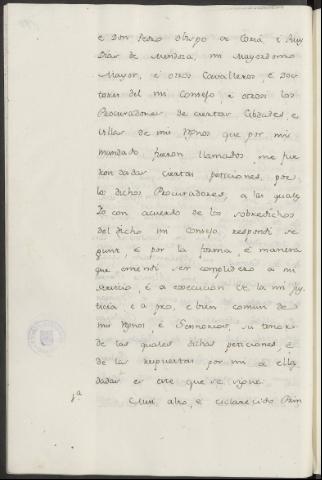 e Don Pedro obispo de Coria, e Ruy
Diaz de Mendoza, mi Mayordomo
Mayor, e otros Cavalleros, e Doc-
tores del mi Consejo, e otrosi los
Procuradores de ciertas Cibdades, e
villas de mis Rgnos que por mi
mandado fueron llamados, me fue
ron dadas ciertas peticiones, por
los dichos Procuradores, a las quales
Yo con acuerdo de los sobredichos
del dicho mi Consejo, respondi se
gunt, e por la forma, e manera
que entendi ser complidero a mi
servicio, e a execucion de la mi jus
ticia, e a pro, e bien comun de
mis Rgnos, e Sennorios, su tenor
de las quales dichas peticiones, e
de las repuestas por mi a ellas
dadas es este que se sigue.
1.a Mui alto, e esclarecido Prin